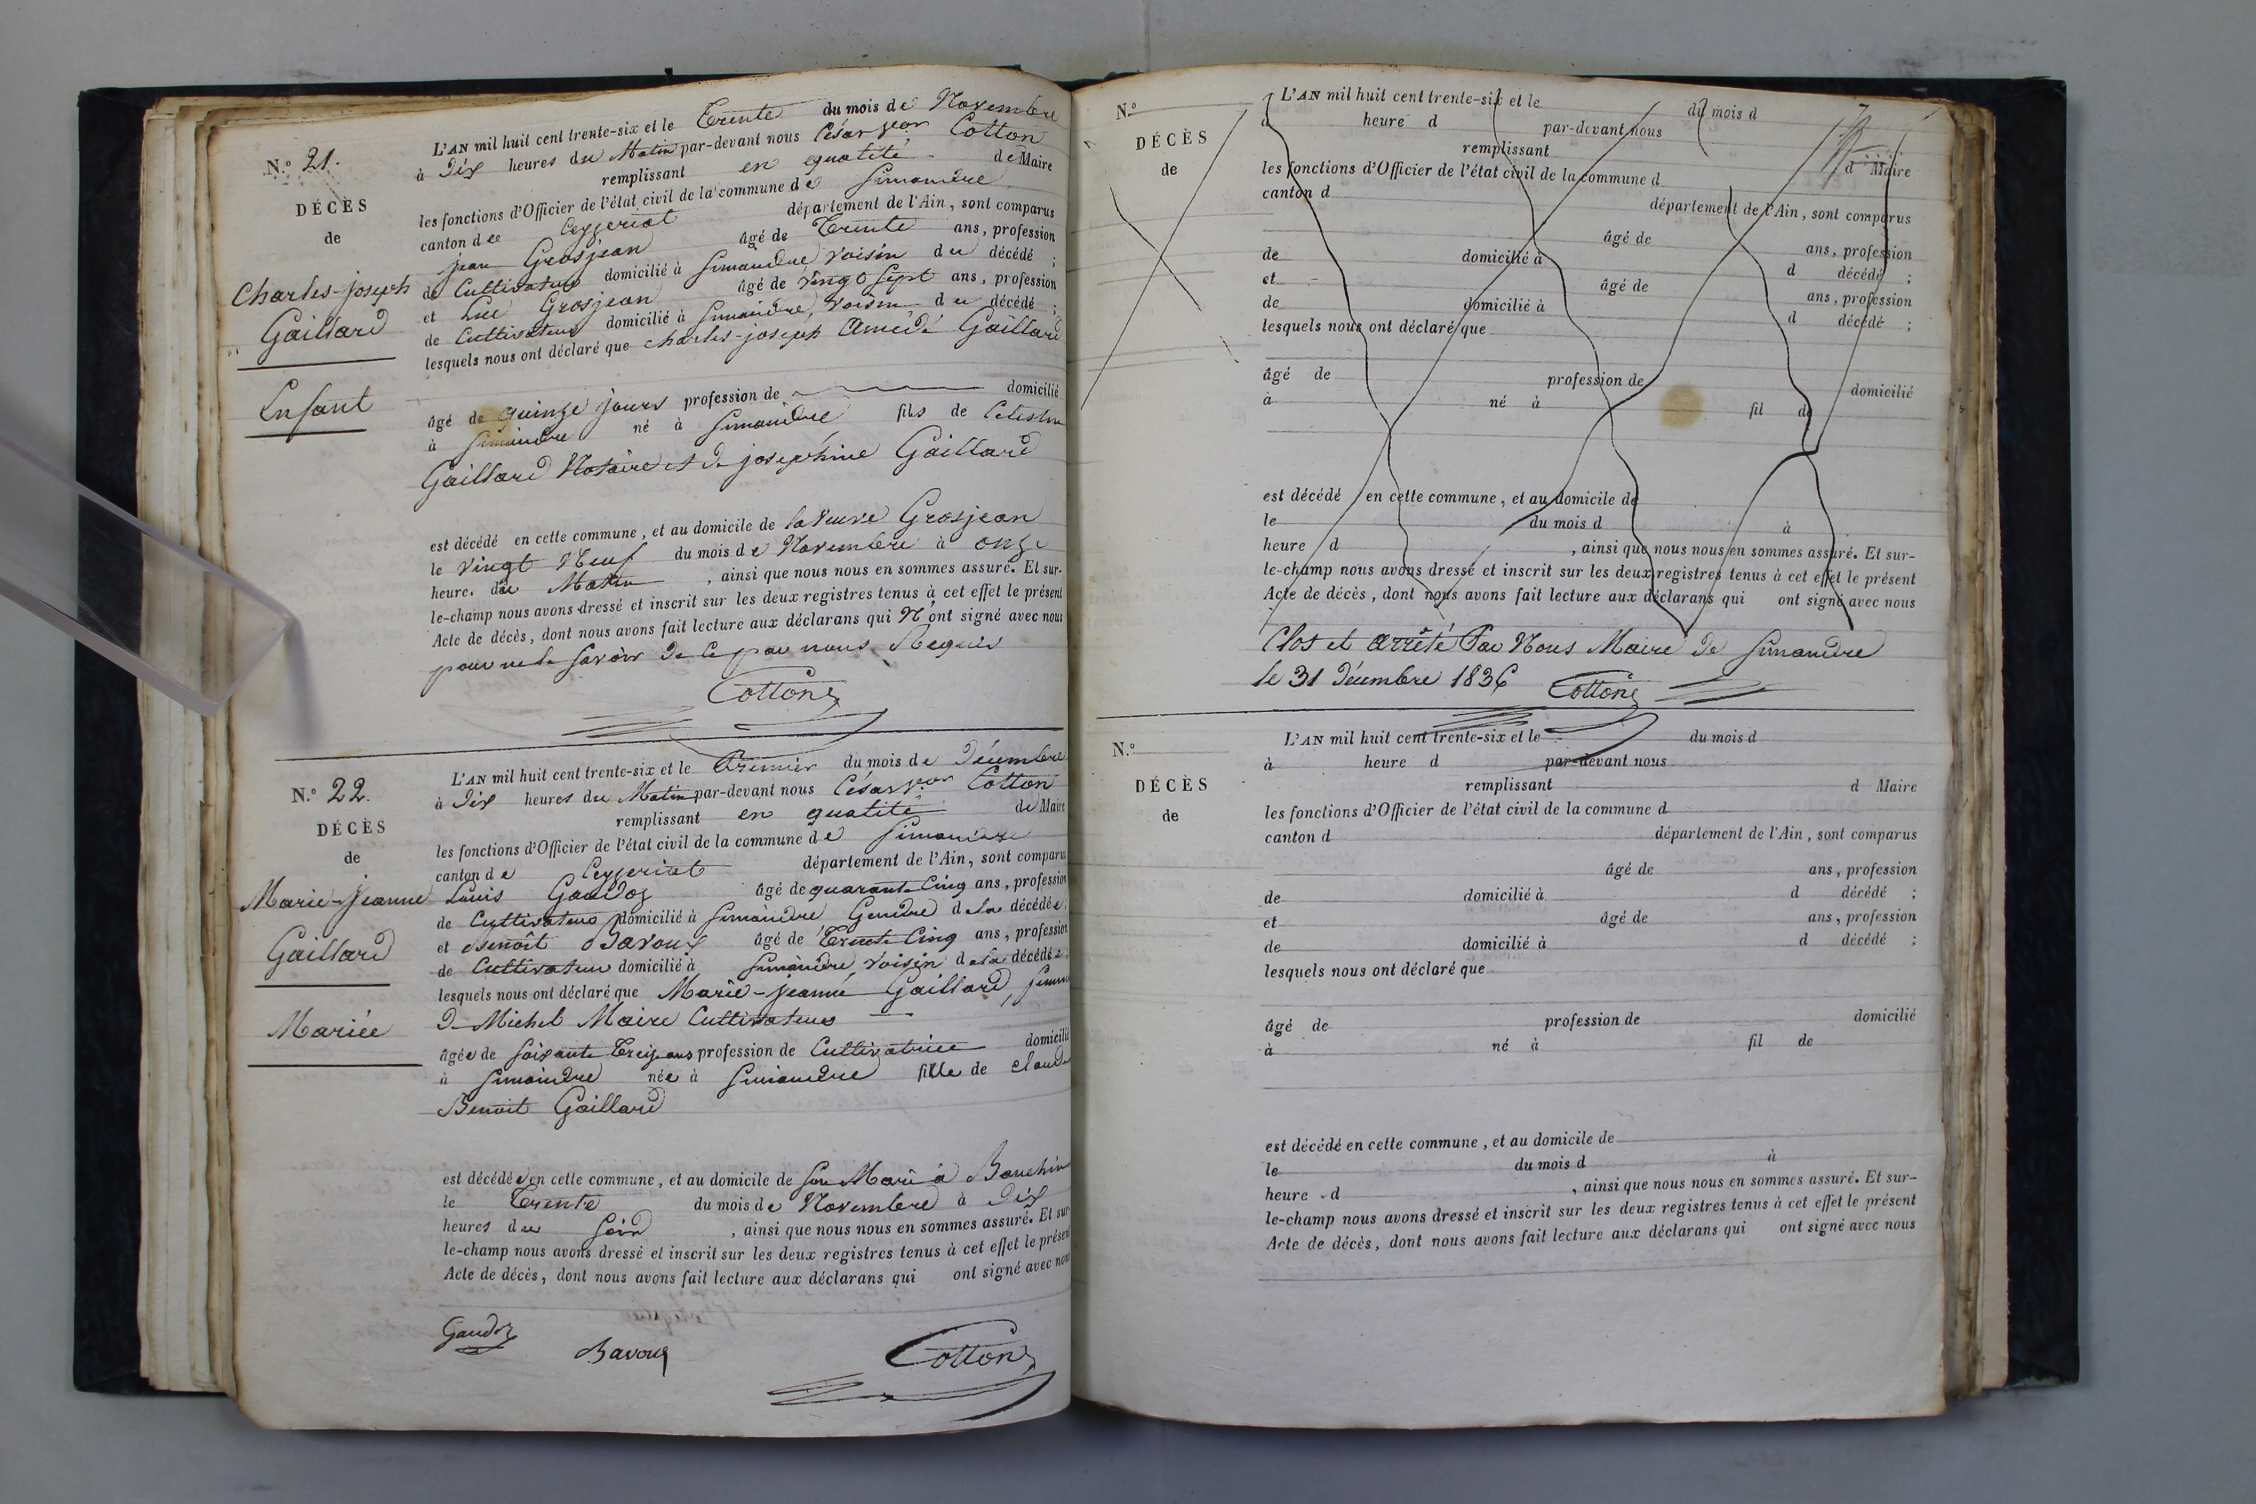 N.° 21.
DÉCÈS
de
Charles-joseph
Gaillard
Enfant
L'AN mil huit cent trente-six et le Trente du mois de Novembre
à Dix heures du Matin par-devant nous César Cotton
remplissant en qualité de Maire
les fonctions d'Officier de l'état civil de la commune de Simandre
canton de Ceyzeriat département de l'Ain, sont comparus
jean Grosjean âgé de Trente ans, profession
de Cultivateur domicilié à Simandre voisin du décédé ;
et Luc Grosjean âgé de vingt Sept ans, profession
de Cultivateur domicilié à Simandre, voisin du décédé ;
lesquels nous ont déclaré que charles-joseph Amédé Gaillard
âgé de quinze jours profession de domicilié
à Simandre né à Simandre fils de Celestin
Gaillard Notaire et de joséphine Gaillard
est décédé en cette commune, et au domicile de la veuve Grosjean
le vingt Neuf du mois de Novembre à onze
heure. du Matin , ainsi que nous nous en sommes assuré. Et sur-
le-champ nous avons dressé et inscrit sur les deux registres tenus à cet effet le présent
Acte de décès, dont nous avons fait lecture aux déclarans qui N'ont signé avec nous
pour ne le savoir de ce par nous Requis
Cotton
N.° 22.
DÉCÈS
de
Marie-jeanne
Gaillard
Mariée
L'AN mil huit cent trente-six et le Premier du mois de Décembre
à Dix heures du Matin par-devant nous César Cotton
remplissant en qualité de Maire
les fonctions d'Officier de l'état civil de la commune de Simandre
canton de Ceyzeriat département de l'Ain, sont comparus
Louis Gaudoz âgé de quarante Cinq ans, profession
de Cultivateur domicilié à Simandre Gendre de la décédée ;
et Benoît Bavoux âgé de Trente Cinq ans, profession
de Cultivateur domicilié à Simandre voisin de la décédée ;
lesquels nous ont déclaré que Marie-jeanne Gaillard, femme
de Michel Maire Cultivateur
âgée de soixante Treize ans profession de Cultivatrice domicilié
à Simandre née à Simandre fille de claude
Benoit Gaillard
est décédée en cette commune, et au domicile de son Mari à Bauchin
le Trente du mois de Novembre à Dix
heures du Soir , ainsi que nous nous en sommes assuré. Et sur-
le-champ nous avons dressé et inscrit sur les deux registres tenus à cet effet le présent
Acte de décès, dont nous avons fait lecture aux déclarans qui ont signé avec nous
Gaudoz
Bavoux
Cotton
N.°
DÉCÈS
de
L'AN mil huit cent trente-six et le du mois d
à heure d par-devant nous
remplissant d Maire
les fonctions d'Officier de l'état civil de la commune d
canton d département de l'Ain, sont comparus
âgé de ans, profession
de domicilié à d décédé ;
et âgé de ans, profession
de domicilié à d décédé ;
lesquels nous ont déclaré que
âgé de profession de domicilié
à né à fil de
est décédé en cette commune, et au domicile de
le du mois d à
heure d , ainsi que nous nous en sommes assuré. Et sur-
le-champ nous avons dressé et inscrit sur les deux registres tenus à cet effet le présent
Acte de décès, dont nous avons fait lecture aux déclarans qui ont signé avec nous
Clos et arrêté Par Nous Maire de Simandre
le 31 Décembre 1836 Cotton
N.°
DÉCÈS
de
L'AN mil huit cent trente-six et le du mois d
à heure d par-devant nous
remplissant d Maire
les fonctions d'Officier de l'état civil de la commune d
canton d département de l'Ain, sont comparus
âgé de ans, profession
de domicilié à d décédé ;
et âgé de ans, profession
de domicilié à d décédé ;
lesquels nous ont déclaré que
âgé de profession de domicilié
à né à fil de
est décédé en cette commune, et au domicile de
le du mois d à
heure d , ainsi que nous nous en sommes assuré. Et sur-
le-champ nous avons dressé et inscrit sur les deux registres tenus à cet effet le présent
Acte de décès, dont nous avons fait lecture aux déclarans qui ont signé avec nous